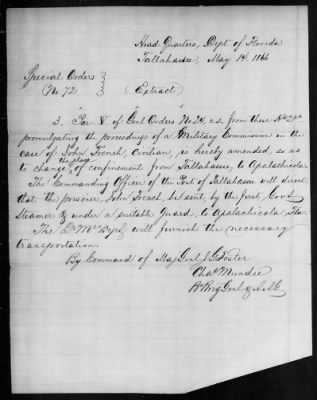 Head Quarters, Dept of Florida
Tallahassee, May 14, 1866
Special Orders }
No 72. } (Extract)
3. Par. V of Genl Orders No 24, c.s. from these Hd Qrs
promulgating the proceedings of a Military Commission in the
case of John French, Civilian, is hereby amended, so as
to change the place of confinement from Tallahassee, to Apalachicola.
The Commanding Officer of the Post of Tallahassee will direct
that the prisoner, John French, be sent, by the first Govt
Steamer & under a suitable guard, to Apalachicola, Fla.
The Q Mr Dept will furnish the necessary
transportation.
By Command of Maj Genl J G Foster
Chas Mundee
Brig Genl & A.A.G.